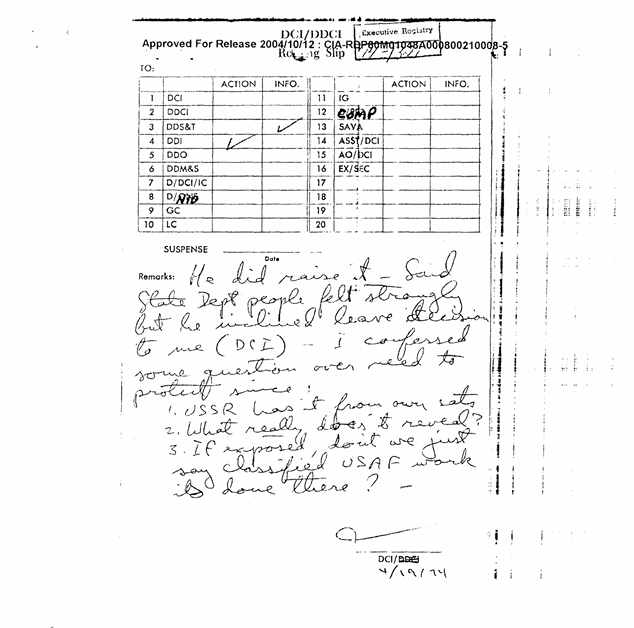 DCI/DDCI
Executive Registry
Approved For Release 2004/10/12 : CIA-RDP80M01048A000800210008-5
Slip
TO:
ACTION INFO. ACTION INFO.
1 DCI 11 IG
2 DDCI 12 COMP
3 DDS&T ✓ 13 SAVA
4 DDI ✓ 14 ASST/DCI
5 DDO 15 AO/DCI
6 DDM&S 16 EX/SEC
7 D/DCI/IC 17
8 D/NIO 18
9 GC 19
10 LC 20
SUSPENSE
Date
Remarks: He did raise it — Said
State Dept people felt strongly
but he inclined leave decision
to me (DCI) — I confessed
some question over need to
protect since:
1. USSR has it from own sats
2. What really does it reveal?
3. If exposed, don't we just
say classified USAF work
is done there? —
DCI/DDCI
4/19/74